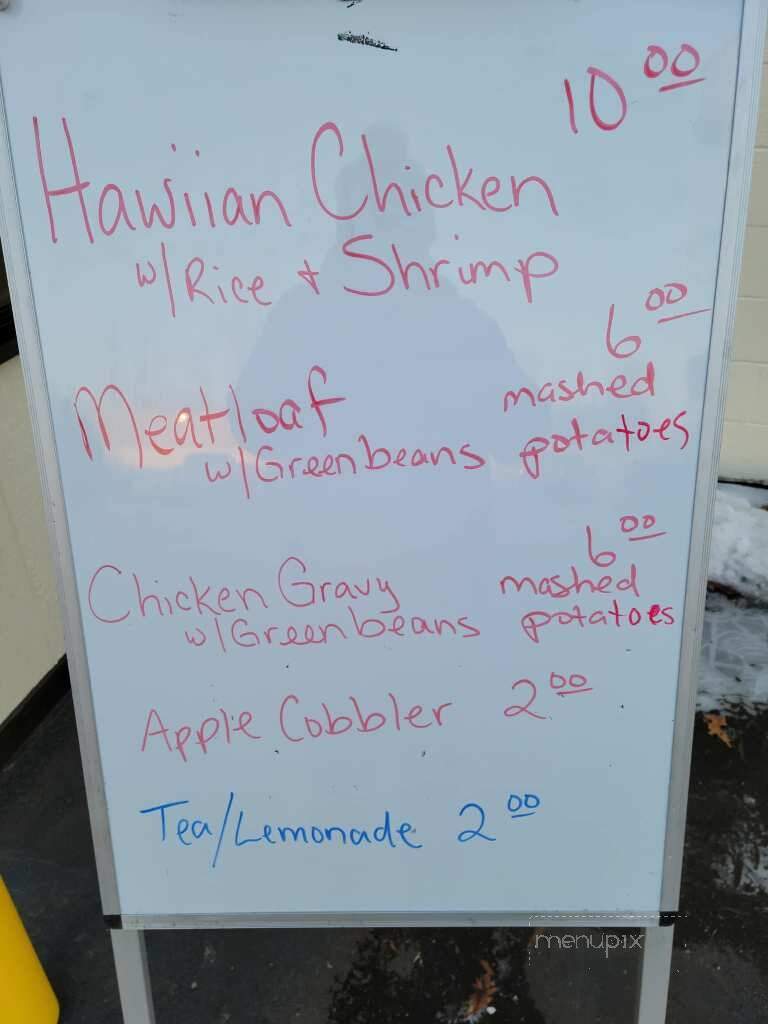 10 00
Hawiian Chicken
w/Rice + Shrimp
6 00
Meatloaf mashed
w/Greenbeans potatoes
6 00
Chicken Gravy mashed
w/Greenbeans potatoes
Apple Cobbler 2 00
Tea/Lemonade 2 00
menupix